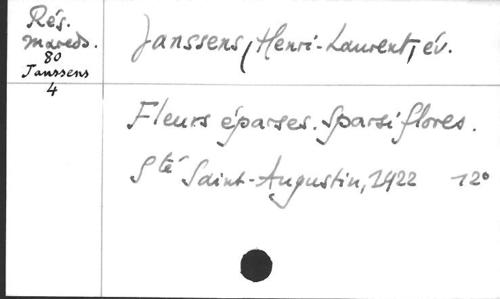 Rés.
Mareds.
80
Janssens
4
Janssens, Henri-Laurent, év.
Fleurs éparses. Sparsi flores.
Sté Saint-Augustin, 1922 12°